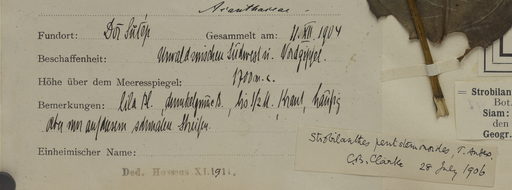 Acanthaceae
Fundort: Doi Sutäp Gesammelt am: 21. XII. 1904
Beschaffenheit: Urwald zwischen Südwest u. Nordgipfel.
Höhe über dem Meeresspiegel: 1700 m. c.
Bemerkungen: lila Bl., bis 1/2 m. Kraut, häufig
aber nur auf einem schmalen Streifen.
Einheimischer Name:
Ded. Hosseus XI. 19
Strobilanthes pentstemonoides T. Anders.
C.B. Clarke 28 July 1906
= Strobilan
Bot.
Siam:
den
Geogr.